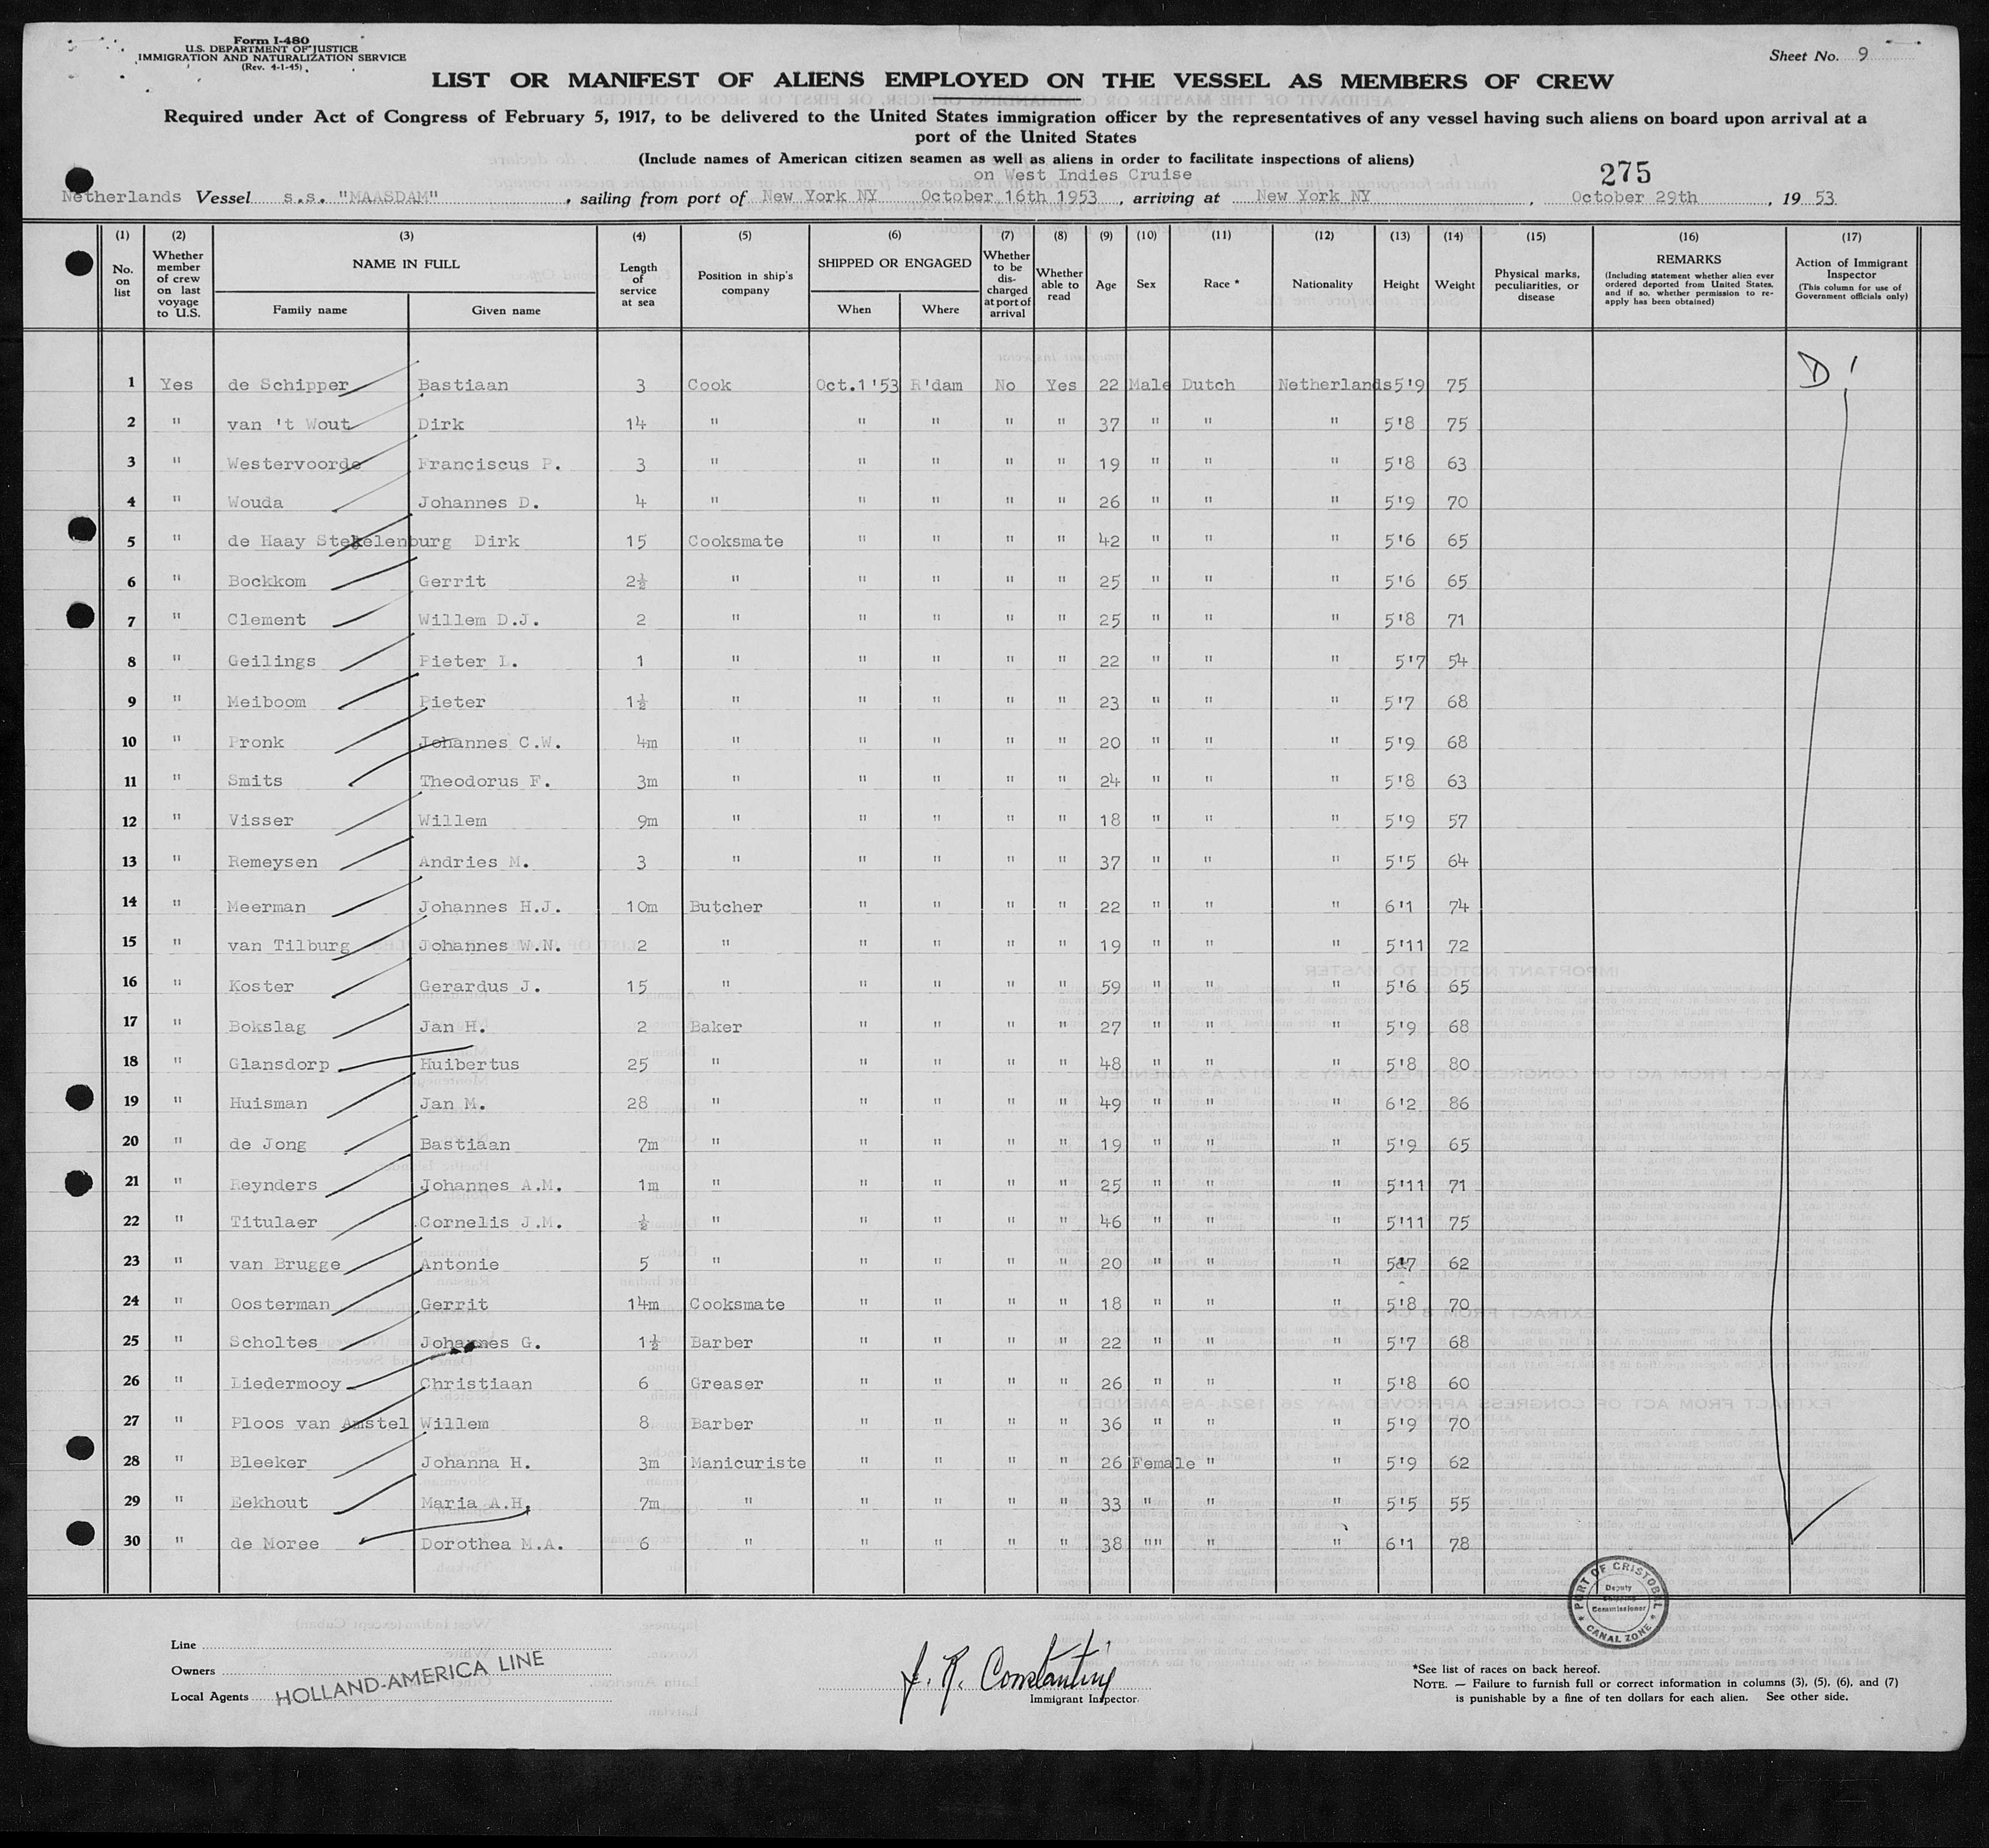 Form I-480
U.S. DEPARTMENT OF JUSTICE
IMMIGRATION AND NATURALIZATION SERVICE
(Rev. 4-1-45)
Sheet No. 9
LIST OR MANIFEST OF ALIENS EMPLOYED ON THE VESSEL AS MEMBERS OF CREW
Required under Act of Congress of February 5, 1917, to be delivered to the United States immigration officer by the representatives of any vessel having such aliens on board upon arrival at a
port of the United States
(Include names of American citizen seamen as well as aliens in order to facilitate inspections of aliens)
on West Indies Cruise
275
Netherlands Vessel s.s. "MAASDAM" , sailing from port of New York NY October 16th 1953 , arriving at New York NY , October 29th , 19 53
(1) (2) (3) (4) (5) (6) (7) (8) (9) (10) (11) (12) (13) (14) (15) (16) (17)
No. on list Whether member of crew on last voyage to U.S. NAME IN FULL Family name Given name Length of service at sea Position in ship's company SHIPPED OR ENGAGED When Where Whether to be discharged at port of arrival Whether able to read Age Sex Race * Nationality Height Weight Physical marks, peculiarities, or disease REMARKS (Including statement whether alien ever ordered deported from United States, and if so, whether permission to re-apply has been obtained) Action of Immigrant Inspector (This column for use of Government officials only)
D !
1 Yes de Schipper Bastiaan 3 Cook Oct.1'53 R'dam No Yes 22 Male Dutch Netherlands 5'9 75
2 " van 't Wout Dirk 14 " " " " " 37 " " " 5'8 75
3 " Westervoorde Franciscus P. 3 " " " " " 19 " " " 5'8 63
4 " Wouda Johannes D. 4 " " " " " 26 " " " 5'9 70
5 " de Haay Stekelenburg Dirk 15 Cooksmate " " " " 42 " " " 5'6 65
6 " Bockkom Gerrit 2½ " " " " " 25 " " " 5'6 65
7 " Clement Willem D.J. 2 " " " " " 25 " " " 5'8 71
8 " Geilings Pieter L. 1 " " " " " 22 " " " 5'7 54
9 " Meiboom Pieter 1½ " " " " " 23 " " " 5'7 68
10 " Pronk Johannes C.W. 4m " " " " " 20 " " " 5'9 68
11 " Smits Theodorus F. 3m " " " " " 24 " " " 5'8 63
12 " Visser Willem 9m " " " " " 18 " " " 5'9 57
13 " Remeysen Andries M. 3 " " " " " 37 " " " 5'5 64
14 " Meerman Johannes H.J. 10m Butcher " " " " 22 " " " 6'1 74
15 " van Tilburg Johannes W.N. 2 " " " " " 19 " " " 5'11 72
16 " Koster Gerardus J. 15 " " " " " 59 " " " 5'6 65
17 " Bokslag Jan H. 2 Baker " " " " 27 " " " 5'9 68
18 " Glansdorp Huibertus 25 " " " " " 48 " " " 5'8 80
19 " Huisman Jan M. 28 " " " " " 49 " " " 6'2 86
20 " de Jong Bastiaan 7m " " " " " 19 " " " 5'9 65
21 " Reynders Johannes A.M. 1m " " " " " 25 " " " 5'11 71
22 " Titulaer Cornelis J.M. ½ " " " " " 46 " " " 5'11 75
23 " van Brugge Antonie 5 " " " " " 20 " " " 5'7 62
24 " Oosterman Gerrit 14m Cooksmate " " " " 18 " " " 5'8 70
25 " Scholtes Johannes G. 1½ Barber " " " " 22 " " " 5'7 68
26 " Liedermooy Christiaan 6 Greaser " " " " 26 " " " 5'8 60
27 " Ploos van Amstel Willem 8 Barber " " " " 36 " " " 5'9 70
28 " Bleeker Johanna H. 3m Manicuriste " " " " 26 Female " " 5'9 62
29 " Eekhout Maria A.H. 7m " " " " " 33 " " " 5'5 55
30 " de Moree Dorothea M.A. 6 " " " " " 38 "" " " 6'1 78
PORT OF CRISTOBAL
Deputy
Commissioner
CANAL ZONE
Line
Owners
Local Agents
HOLLAND-AMERICA LINE
J. R. Constantine
Immigrant Inspector
*See list of races on back hereof.
NOTE. — Failure to furnish full or correct information in columns (3), (5), (6), and (7)
is punishable by a fine of ten dollars for each alien. See other side.